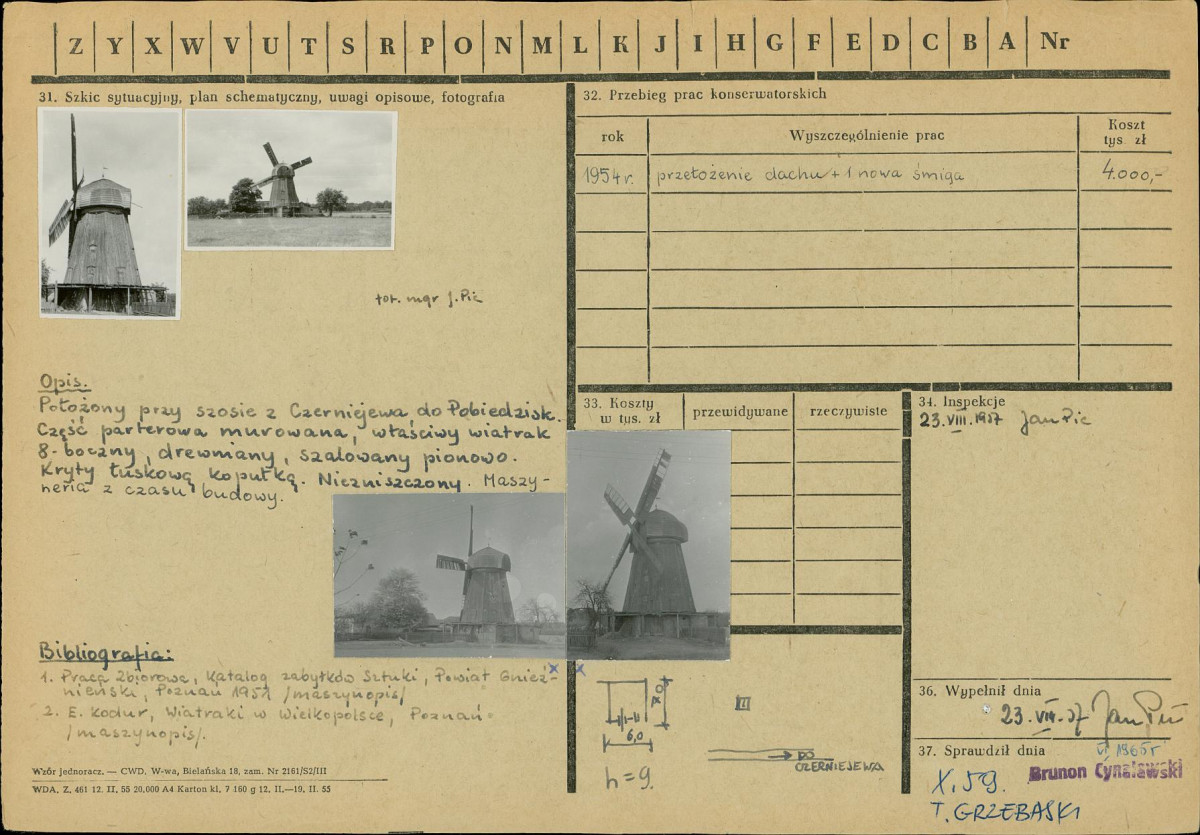 Z Y X W V U T S R P O N M L K J I H G F E D C B A Nr
31. Szkic sytuacyjny, plan schematyczny, uwagi opisowe, fotografia
fot. mgr J. Pic
Opis.
Położony przy szosie z Czerniejewa do Pobiedzisk.
Część parterowa murowana, właściwy wiatrak
8-boczny, drewniany, szalowany pionowo.
Kryty łuskową kopułką. Niezniszczony. Maszy-
neria z czasu budowy.
Bibliografia:
1. Praca Zbiorowa, Katalog zabytków Sztuki, Powiat Gnieź-
nieński, Poznań 1951 /maszynopis/
2. E. Kodur, Wiatraki w Wielkopolsce, Poznań
/maszynopis/.
Wzór jednoracz. — CWD. W-wa, Bielańska 18, zam. Nr 2161/S2/III
WDA. Z. 461 12. II, 55 20,000 A4 Karton kl, 7 160 g 12. II.—19. II. 55
32. Przebieg prac konserwatorskich
rok Wyszczególnienie prac Koszt tys. zł
1954 r. przełożenie dachu + 1 nowa śmiga 4.000,-
33. Koszty w tys. zł przewidywane rzeczywiste
6,0
h = 9.
DO
CZERNIEJEWA
34. Inspekcje
23.VIII.1957 Jan Pic
36. Wypełnił dnia
23.VIII.57 Jan Pic
37. Sprawdził dnia
VI 1965r
Brunon Cynalewski
X.59.
T. GRZEBASKI